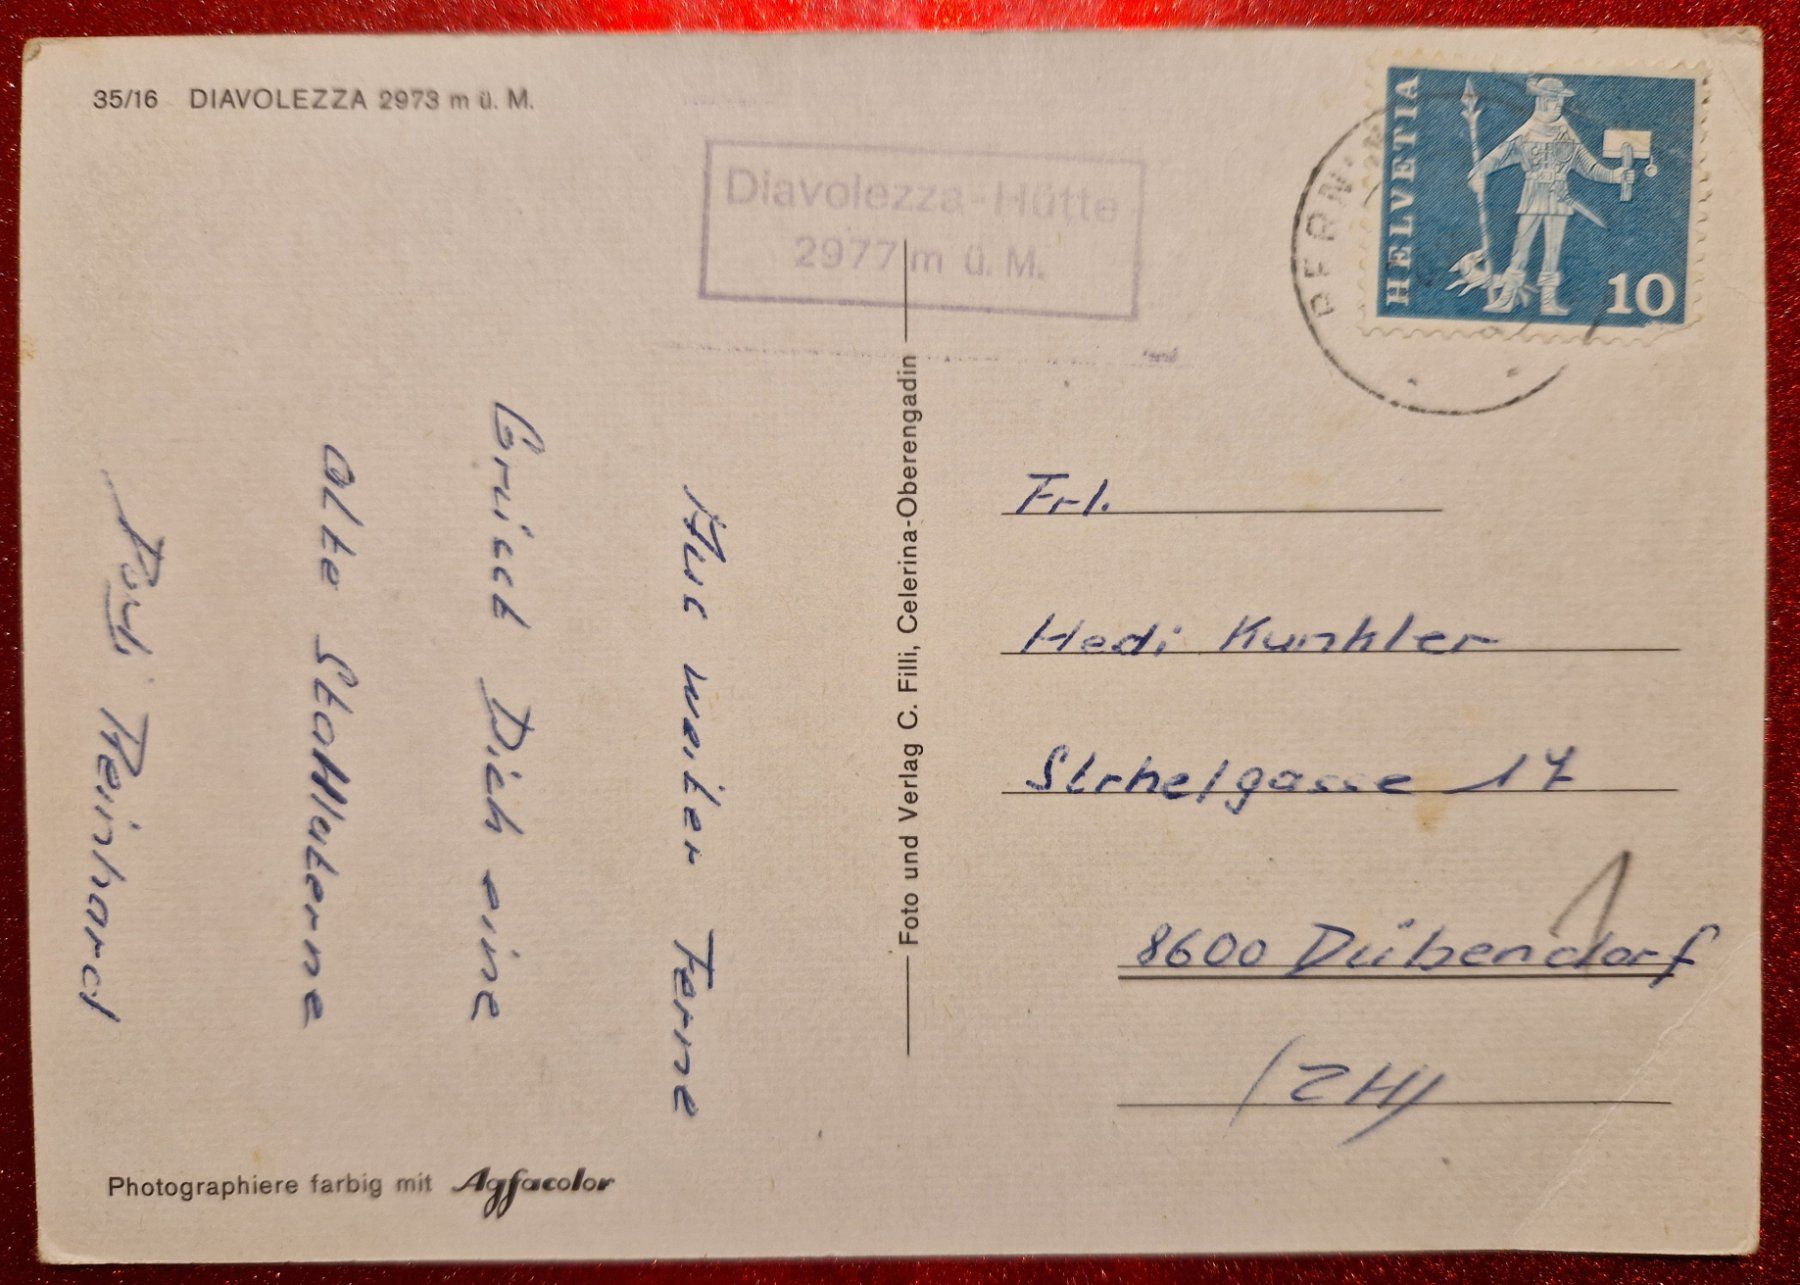 35/16 DIAVOLEZZA 2973 m ü. M.
Diavolezza-Hütte
2977 m ü. M.
HELVETIA
10
Aus weiter Ferne
Grüsst Dich eine
alte Stalllaterne
Reinhard
Foto und Verlag C. Filli, Celerina-Oberengadin
Frl.
Hedi Kunkler
17
8600 Dübendorf
(ZH)
1
Photographiere farbig mit Agfacolor